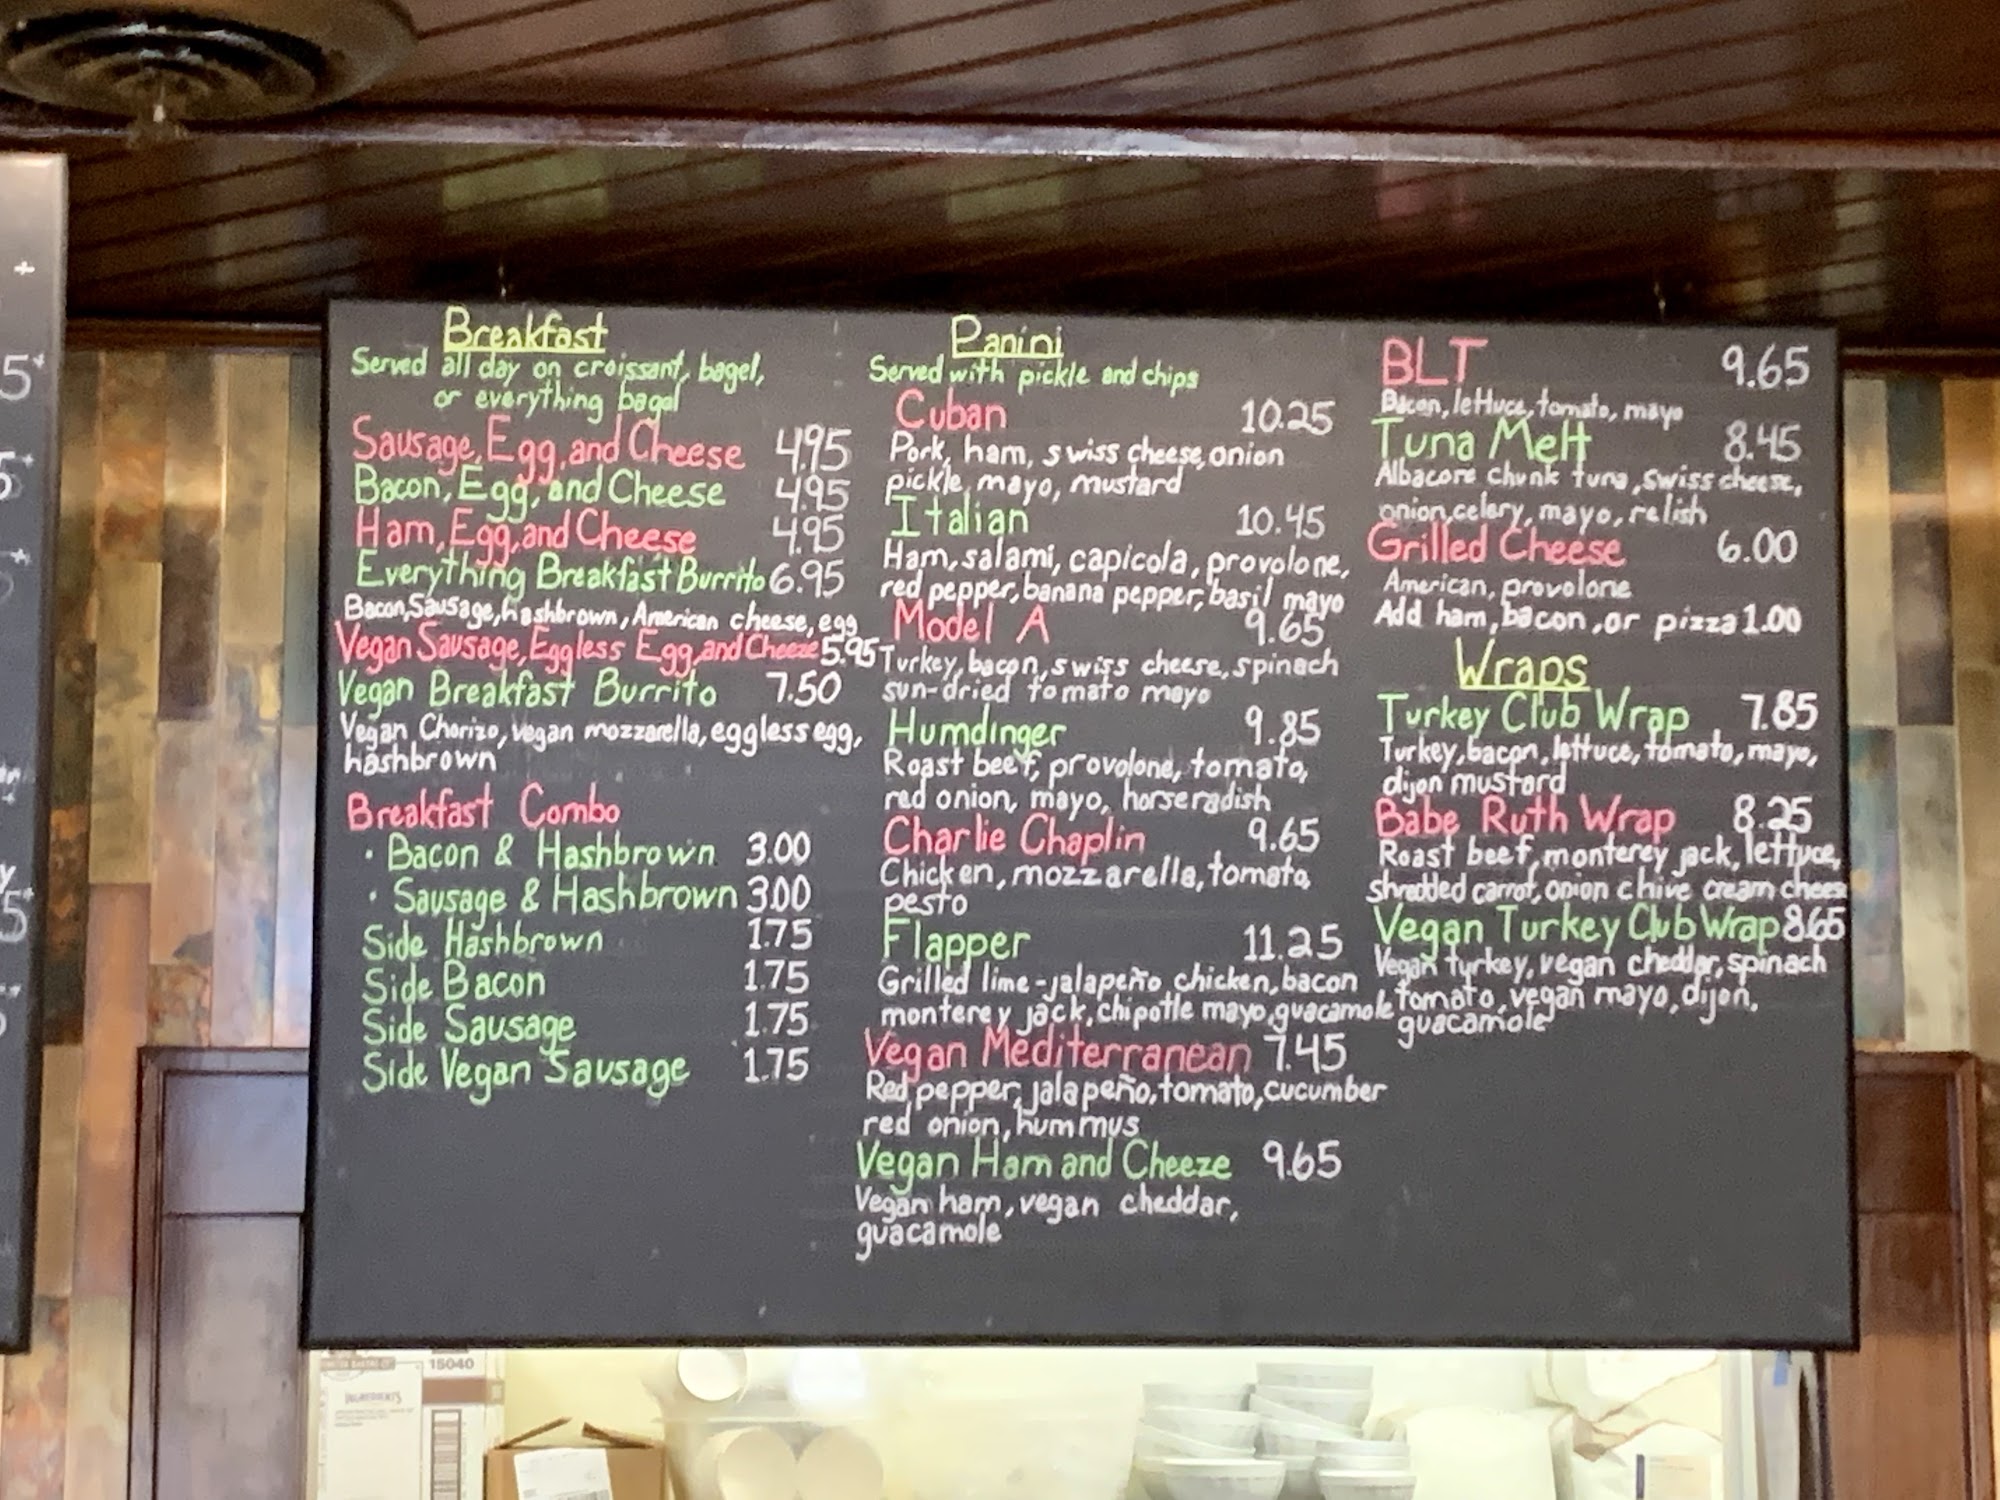 Breakfast
Served all day on croissant, bagel,
or everything bagel
Sausage, Egg, and Cheese 4.95
Bacon, Egg, and Cheese 4.95
Ham, Egg, and Cheese 4.95
Everything Breakfast Burrito 6.95
Bacon, Sausage, hashbrown, American cheese, egg
Vegan Sausage, Eggless Egg, and Cheeze 5.95
Vegan Breakfast Burrito 7.50
Vegan Chorizo, vegan mozzarella, eggless egg,
hashbrown
Breakfast Combo
· Bacon & Hashbrown 3.00
· Sausage & Hashbrown 3.00
Side Hashbrown 1.75
Side Bacon 1.75
Side Sausage 1.75
Side Vegan Sausage 1.75
Panini
Served with pickle and chips
Cuban 10.25
Pork, ham, swiss cheese, onion
pickle, mayo, mustard
Italian 10.45
Ham, salami, capicola, provolone,
red pepper, banana pepper, basil mayo
Model A 9.65
Turkey, bacon, swiss cheese, spinach
sun-dried tomato mayo
Humdinger 9.85
Roast beef, provolone, tomato,
red onion, mayo, horseradish
Charlie Chaplin 9.65
Chicken, mozzarella, tomato,
pesto
Flapper 11.25
Grilled lime-jalapeño chicken, bacon
monterey jack, chipotle mayo, guacamole
Vegan Mediterranean 7.45
Red pepper, jalapeño, tomato, cucumber
red onion, hummus
Vegan Ham and Cheeze 9.65
Vegan ham, vegan cheddar,
guacamole
BLT 9.65
Bacon, lettuce, tomato, mayo
Tuna Melt 8.45
Albacore chunk tuna, swiss cheese,
onion, celery, mayo, relish
Grilled Cheese 6.00
American, provolone
Add ham, bacon, or pizza 1.00
Wraps
Turkey Club Wrap 7.85
Turkey, bacon, lettuce, tomato, mayo,
dijon mustard
Babe Ruth Wrap 8.25
Roast beef, monterey jack, lettuce,
shredded carrot, onion chive cream cheese
Vegan Turkey Club Wrap 8.65
Vegan turkey, vegan cheddar, spinach
tomato, vegan mayo, dijon,
guacamole
15040
INGREDIENTS